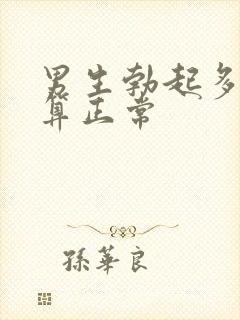 男生勃起多
算正常
孫華良